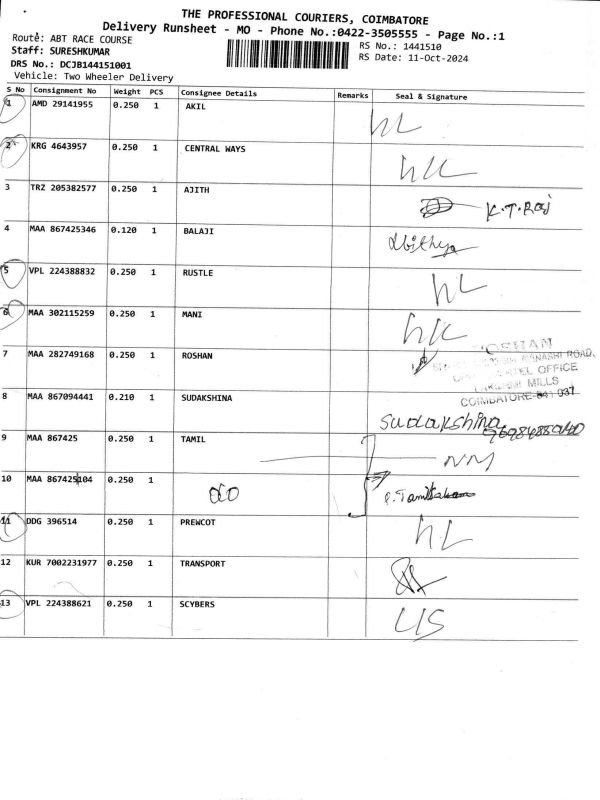 THE PROFESSIONAL COURIERS, COIMBATORE
Delivery Runsheet - MO - Phone No.:0422-3505555 - Page No.:1
Route: ABT RACE COURSE
Staff: SURESHKUMAR
DRS No.: DCJB144151001
Vehicle: Two Wheeler Delivery
RS No.: 1441510
RS Date: 11-Oct-2024
S No Consignment No Weight PCS Consignee Details Remarks Seal & Signature
1 AMD 29141955 0.250 1 AKIL
2 KRG 4643957 0.250 1 CENTRAL WAYS
3 TRZ 205382577 0.250 1 AJITH K.T.Raj
4 MAA 867425346 0.120 1 BALAJI
5 VPL 224388832 0.250 1 RUSTLE
6 MAA 302115259 0.250 1 MANI
7 MAA 282749168 0.250 1 ROSHAN
OFFICE
MILLS
COIMBATORE
8 MAA 867094441 0.210 1 SUDAKSHINA Sudakshina
9 MAA 867425 0.250 1 TAMIL
10 MAA 867425104 0.250 1
11 DDG 396514 0.250 1 PREWCOT
12 KUR 7002231977 0.250 1 TRANSPORT
13 VPL 224388621 0.250 1 SCYBERS